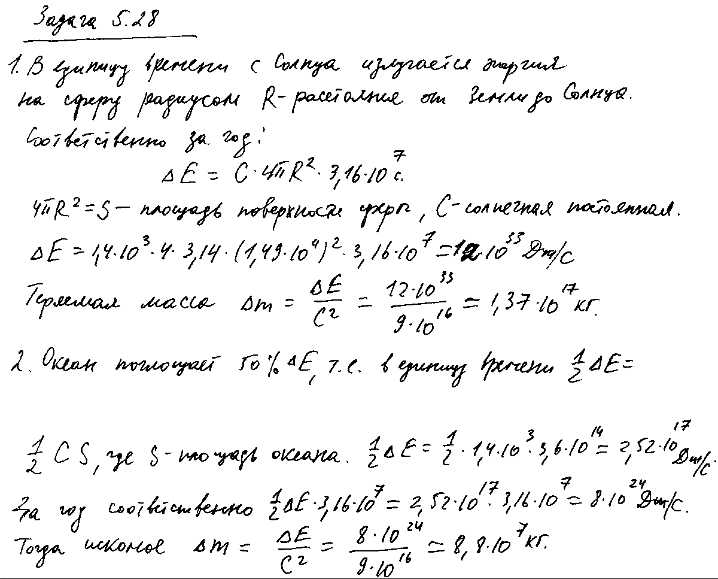 Задача 5.28
1. В единицу времени с Солнца излучается энергия
на сферу радиусом R - расстояние от Земли до Солнца.
Соответственно за год:
ΔE = C·4πR²·3,16·10⁷ с.
4πR² = S - площадь поверхности сферы, C - солнечная постоянная.
ΔE = 1,4·10³·4·3,14·(1,49·10⁴)²·3,16·10⁷ = 12·10³³ Дж/с
Теряемая масса Δm = ΔE/C² = 12·10³³/9·10¹⁶ = 1,37·10¹⁷ кг.
2. Океан поглощает 50% ΔE, т.е. в единицу времени ½ ΔE =
½ C S, где S - площадь океана. ½ ΔE = ½·1,4·10³·3,6·10¹⁴ = 2,52·10¹⁷ Дж/с.
За год соответственно ½ΔE·3,16·10⁷ = 2,52·10¹⁷·3,16·10⁷ = 8·10²⁴ Дж/с.
Тогда искомое Δm = ΔE/C² = 8·10²⁴/9·10¹⁶ = 8,8·10⁷ кг.